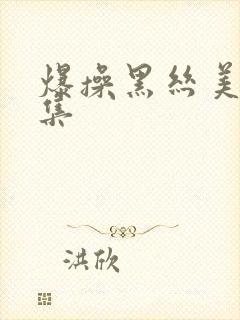 爆操黑丝美
集
洪欣